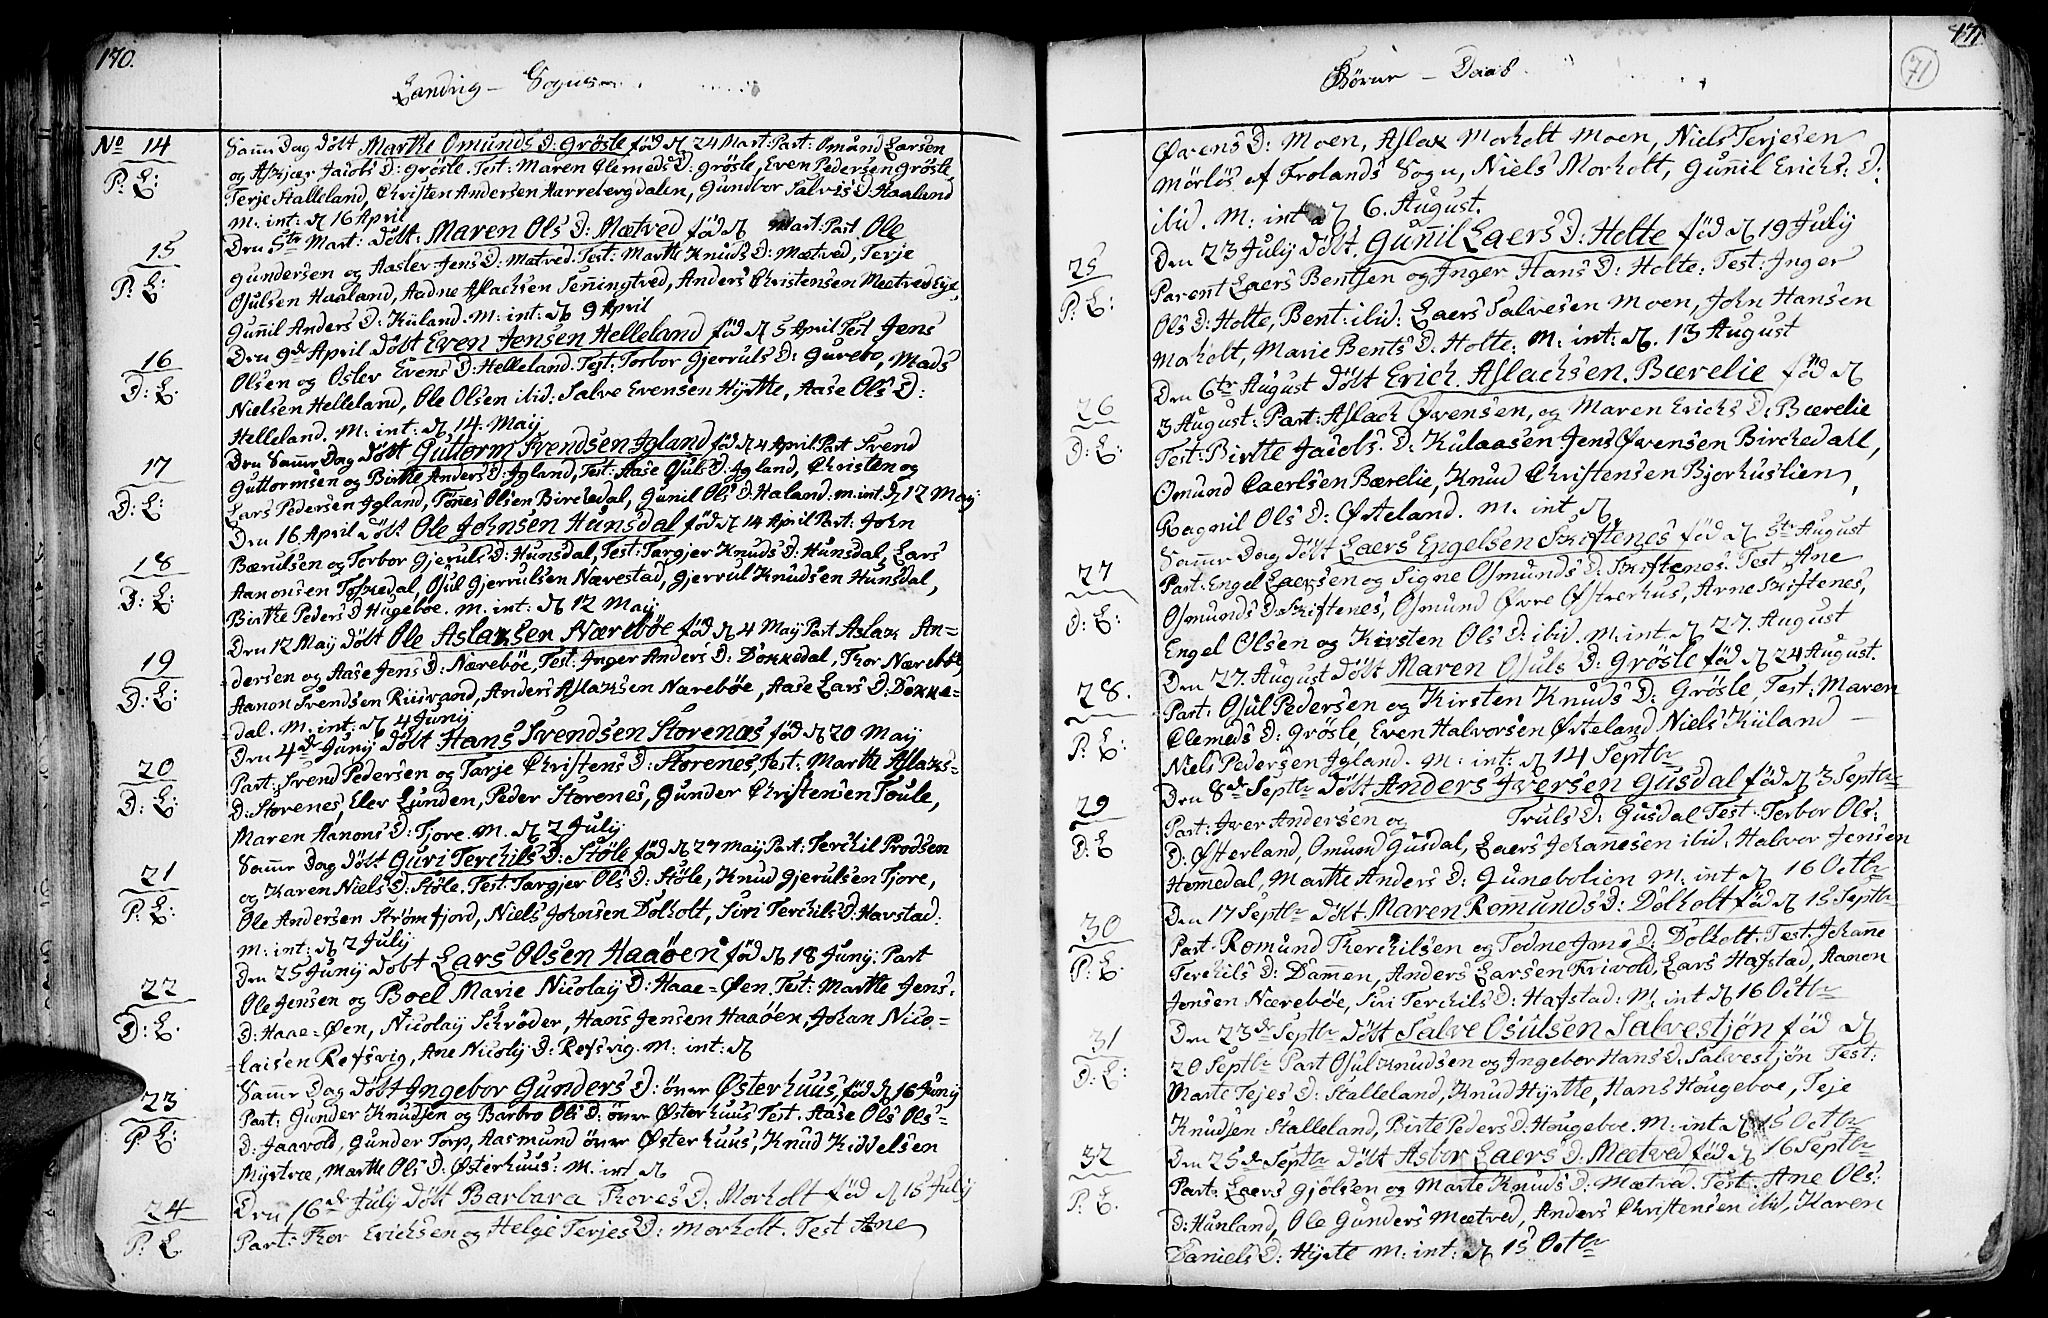 170.
Landvig - Sogns
No 14
P: E:
Samme Dag Döbt Marthe Omunds D: Grösle föd d 24 Mart: Part: Omund Larsen
og Askjær Jacobs D: Grösle. Test: Maren Clemeds D: Grösle, Even Pedersen Grösle,
Terje Stalleland, Christen Andersen Harrebergdalen, Gunbor Salvis D: Haaland
M: int: d 16 April
15
P: E:
Den 5te Mart: Döbt: Maren Ols D: Mætved föd d Mart: Part Ole
Gundersen og Aaslev Jens D: Mætved. Test: Marthe Knuds D: Mætved, Terje
Osulsen Haaland, Aadne Aslachsen Senningtved, Anders Christensen Mætved Eje,
Gunnil Anders D: Küland. M: int: d 9 April
16
D: E:
Den 9de April Döbt Even Jensen Helleland föd d 5 April Test Jens
Olsen og Oslev Evens D: Helleland. Test: Torbor Gjerruls D: Gurebo, Mads
Nielsen Helleland, Ole Olsen ibid: Salve Evensen Hyrtte, Aase Ols D:
Helleland. M: int: d 14 May
17
D: E:
Den Samme Dag Döbt Guttorm Svendsen Igland föd d 4 April Part Svend
Guttormsen og Birthe Anders D: Igland, Test: Aase Osuls D: Igland, Christen og
Lars Pedersen Igland, Tönes Olsen Birchedal, Gunil Ols D: Haland: M: int. d 12 May:
18
D: E:
Den 16 April Döbt Ole Johnsen Hunsdal föd d 14 April Part: John
Bærulsen og Torbor Gjeruls D: Hunsdal, Test: Targjer Knuds D: Hunsdal, Lars
Aanonsen Toskedal, Osul Gjerrulsen Nævestad, Gjerrul Knudsen Hunsdal,
Birthe Peders D Hugeböe. M: int: d 12 May
19
D: E:
Den 12 May Döbt Ole Aslaksen Næreböe föd d 4 May Part Aslak An=
=dersen og Aase Jens D: Næreböe, Test: Inger Anders D: Dokkedal, Thor Næreböe
Aanon Svendsen Riisvand, Anders Aslaksen Næreböe, Aase Lars D: Dokke=
=dal. M: int: d 4 Junij
20
D: E:
Den 4de Junij Döbt Hans Svendsen Storenæs föd d 20 May
Part: Svend Pedersen og Tarje Christens D: Storenes, Test: Marthe Aslaks=
D: Storenes, Elev Lunden, Peder Storenes, Gunder Christensen Foule,
Maren Aanons D: Tjore. M. d 2 July
21
P: E:
Samme Dag Döbt Guri Terchils D: Stöle föd d 27 May Part: Terchil Frodsen
og Karen Niels D: Stöle. Test: Targjer Ols D: Stöle, Knud Gjerulsen Tjore,
Ole Andersen Strömfjord, Niels Johnsen Dolholt, Siri Terchils D: Havstad:
M: int: d 2 July
22
D: E:
Den 25 Junij Döbt Lars Olsen Haaöen föd d 18 Juny: Part
Ole Jensen og Boel Marie Nicolaij D: Haae=Øen. Test: Marthe Jens:
D: Haae=Øen, Nicolaij Schröder, Hans Jensen Haaöen, Johan Nico=
=laisen Refsvig, Ane Nicolij D: Refsvig. M: int: d
23
P: E:
Samme Dag Döbt Ingebor Gunders D: över Østerhuus, föd d 16 Junij
Part: Gunder Knudsen og Barbro Ols D: över Østerhuus Test: Aase Ols Ols=
D: Jaavold, Gunder Torp, Aasmund över Østerhuus, Knud Kiddelsen
Myrtvæ, Marthe Ols D: Østerhuus: M: int d
24
P: E.
Den 16de July Döbt Barbara Thores D: Morholt föd d 15 July
Part: Thor Erichsen og Helge Terjes D: Morholt. Test Ane
171
71
Börne - Daab
Øvens D: Moen, Aslak Morholt Moen, Niels Terjesen
Mörlös af Frolands Sogn, Niels Morholt, Gunil Erichs: D:
ibid. M: int d 6. August.
25
P: E:
Den 23 July Döbt. Gunil Laers D: Holte föd d 19 July
Parent Laers Bentsen og Inger Hans D: Holte: Test: Inger
Ols D: Holte, Bent: ibid: Laers Salvesen Moen, John Hansen
Morholt, Marie Bents D: Holte: M: int: d. 13 August
26
D: E:
Den 6te August Döbt Erich Aslachsen Bærelie föd d
3 August: Part: Aslach Øvensen, og Maren Erichs D: Bærelie
Test: Birthe Jacobs: D: Kulaasen Jens Øvensen Birchedall,
Omund Caerlsen Bærelie, Knud Christensen Bjorhuslien,
Ragnil Ols D: Østeland. M. int d
27
D: E:
Samme Dag Döbt Laers Engelsen Skiftenes föd d 5te August
Part: Engel Laersen og Signe Osmunds D: Skiftenes. Test Ane
Osmunds D: Skiftenes, Osmund Øvre Østerhus, Arne Skiftenes,
Engel Olsen og Kirsten Ols D: ibid. M: int. d 27. August
28.
P: E:
Den 27. August Döbt Maren Osuls D: Grösle föd d 24 August.
Part: Osul Pedersen og Kirsten Knuds D: Grösle, Test: Maren
Clemeds D: Grösle, Even Halvorsen Østeland Niels Küland -
Niels Pedersen Igland. M: int: d 14 Septbr
29
D: E
Den 8de Septbr Döbt Anders Iversen Gusdal föd d 3 Septbr
Part: Iver Andersen og Truls D: Gusdal Test: Torbor Ols:
D: Østerland, Omund Gusdal, Laers Johanesen ibid. Halvor Jensen
Homedal, Marthe Anders D: Gunebolien M: int d 16 Octbr
30
P: E:
Den 17 Septbr Döbt Maren Romunds D: Dolholt föd d 15 Septbr
Part: Romund Therchilsen og Todne Jens D: Dolholt: Test: Johane
Terchils D: Dammen, Anders Larsen Frivold, Lars Hafstad, Aanon
Jensen Næreböe, Siri Terchils D: Hafstad: M: int d 16 Octbr
31
D: E:
Den 23de Septbr Döbt Salve Osulsen Salvestjön föd d
20 Septbr Part Osul Knudsen og Ingebor Hans D: Salvestjön Test:
Marte Tejes D: Stalleland, Knud Hyrtte, Hans Hougeboe, Teje
Knudsen Stalleland, Birte Peders D: Hougeboe. M: int d 15 Octbr
32
P: E.
Den 25de Septbr Döbt Asbor Laers D: Mætved föd d 16 Septbr
Part: Laers Gjölsen og Marte Knuds D: Mætved. Test: Ane Ols:
D: Hunland, Ole Gunders Mætved, Anders Christensen ibid, Karen
Daniels D: Hyrte M: int: d 15 Octbr